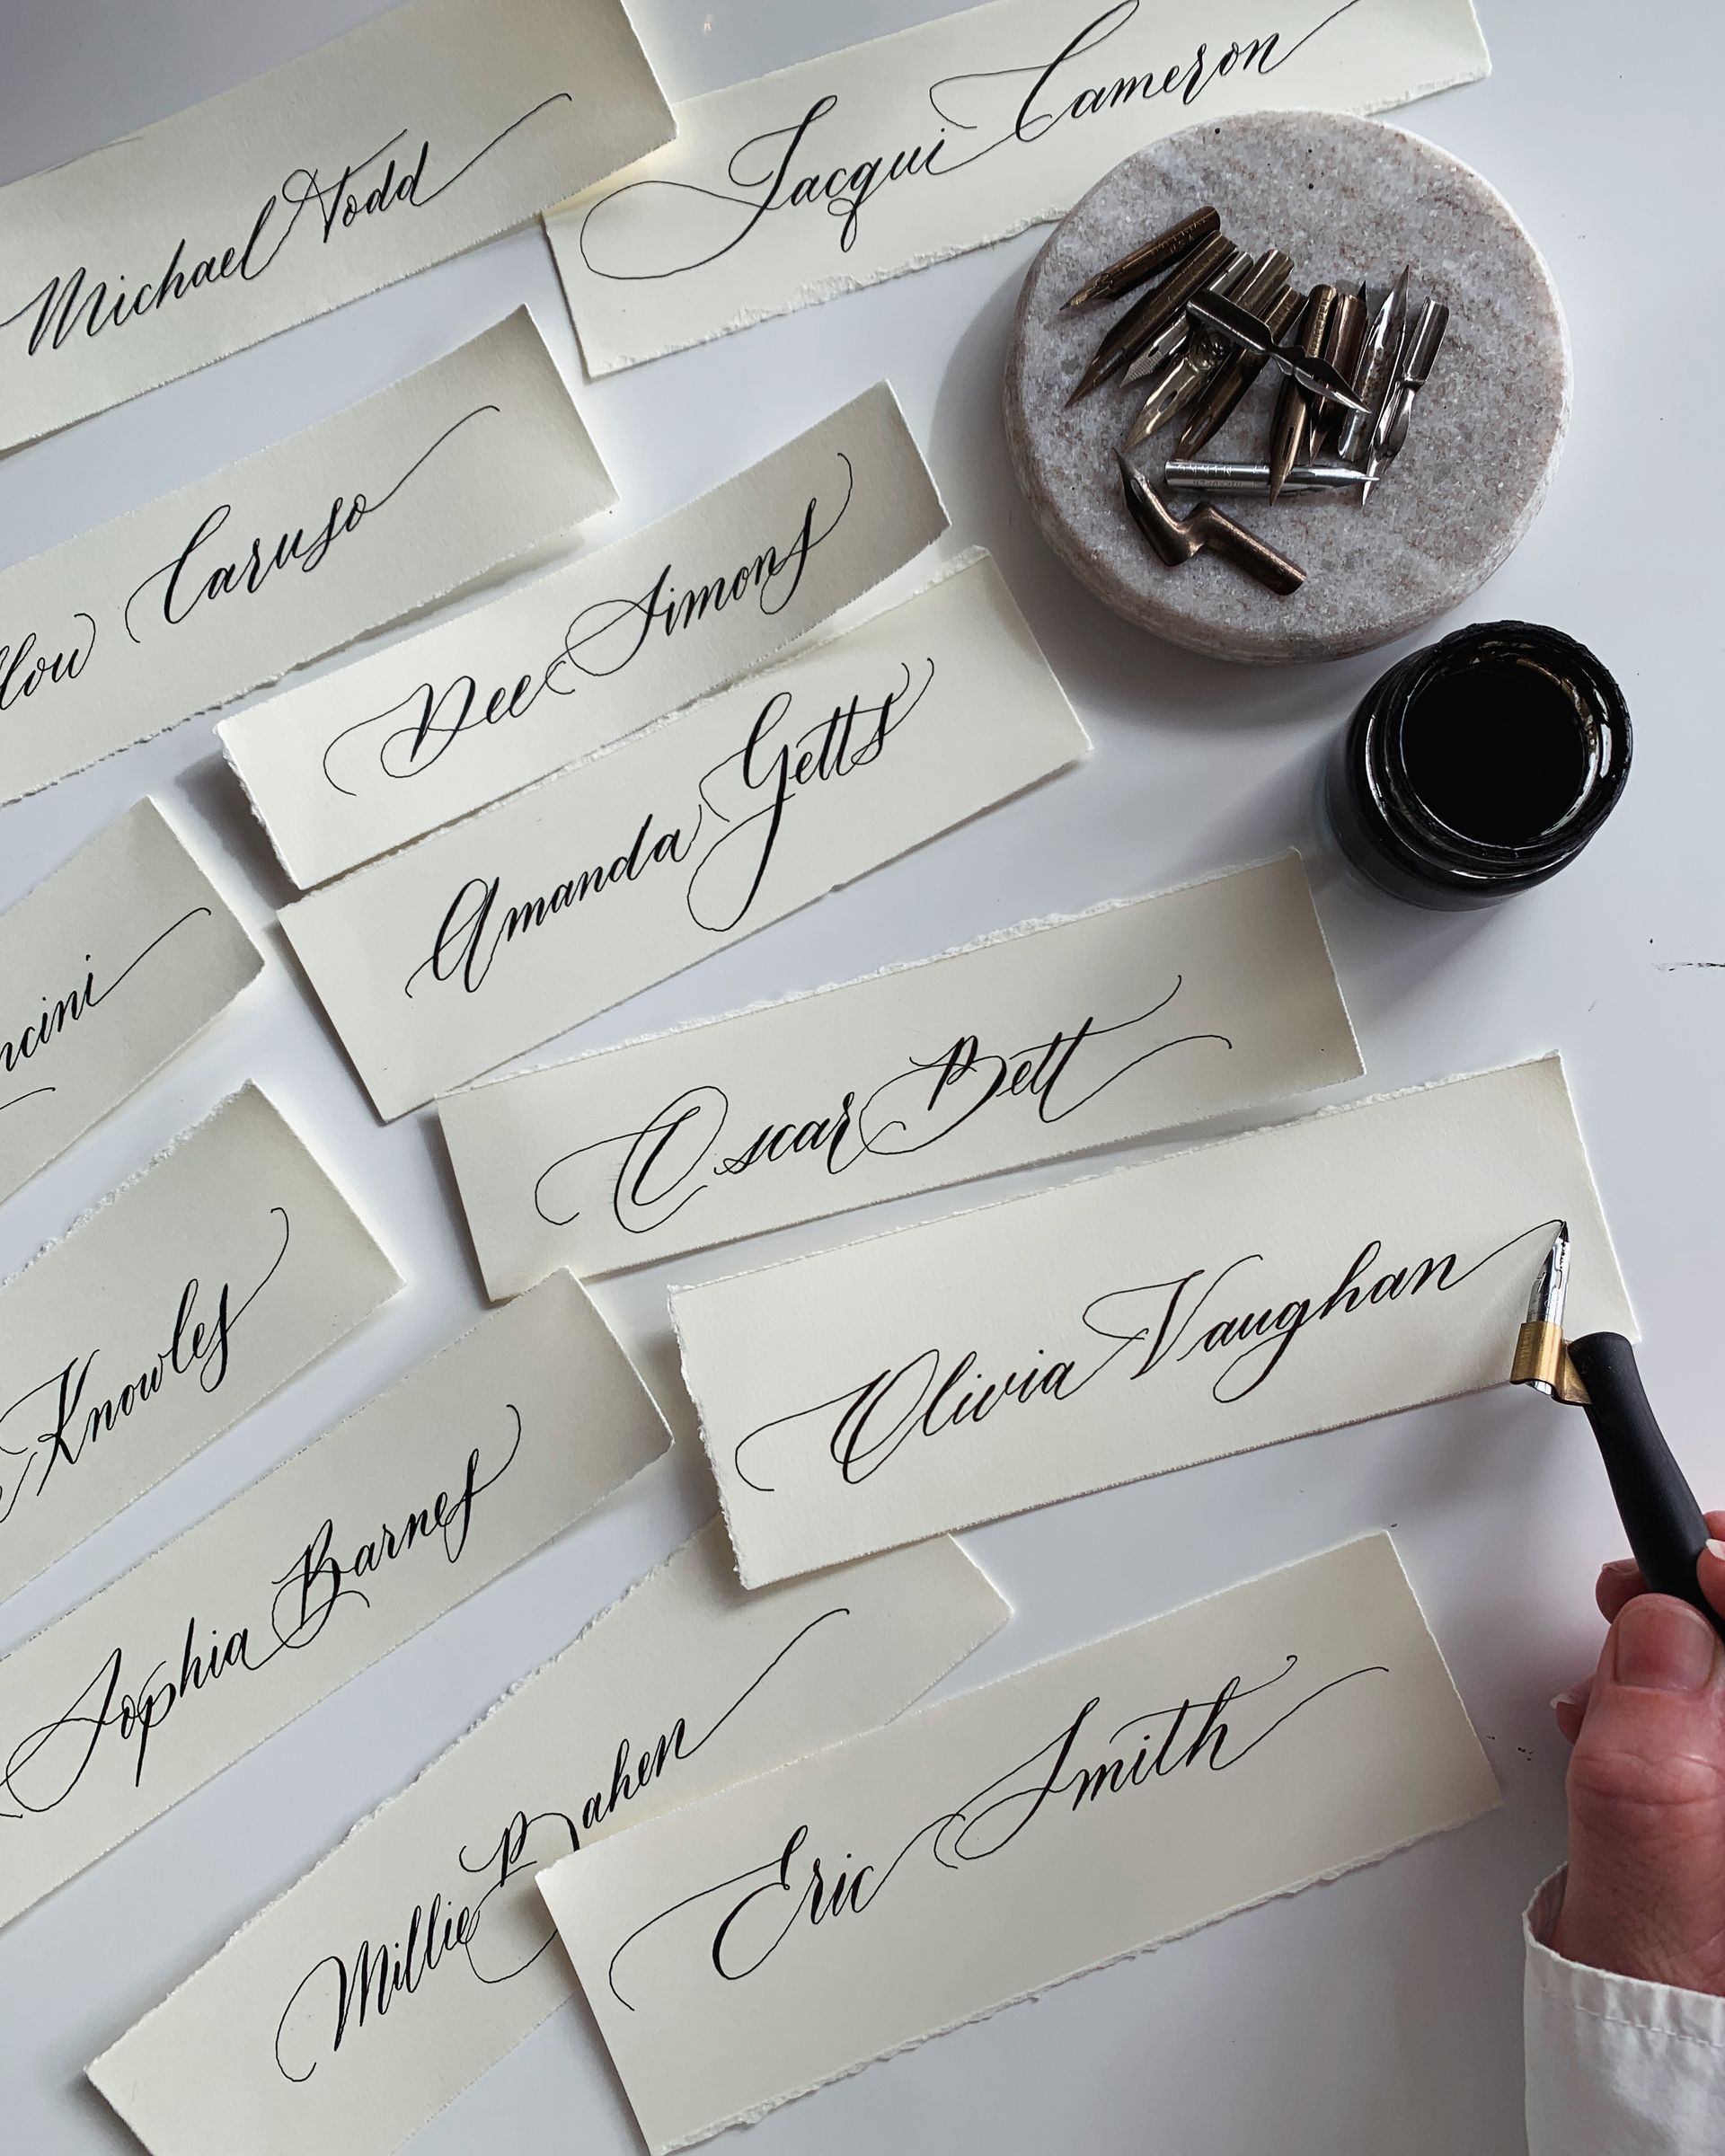 Michael Todd
Jacqui Cameron
Caruso
Dee Simons
Amanda Getts
Oscar Bett
Knowles
Olivia Vaughan
Sophia Barnes
Millie Bahen
Eric Smith